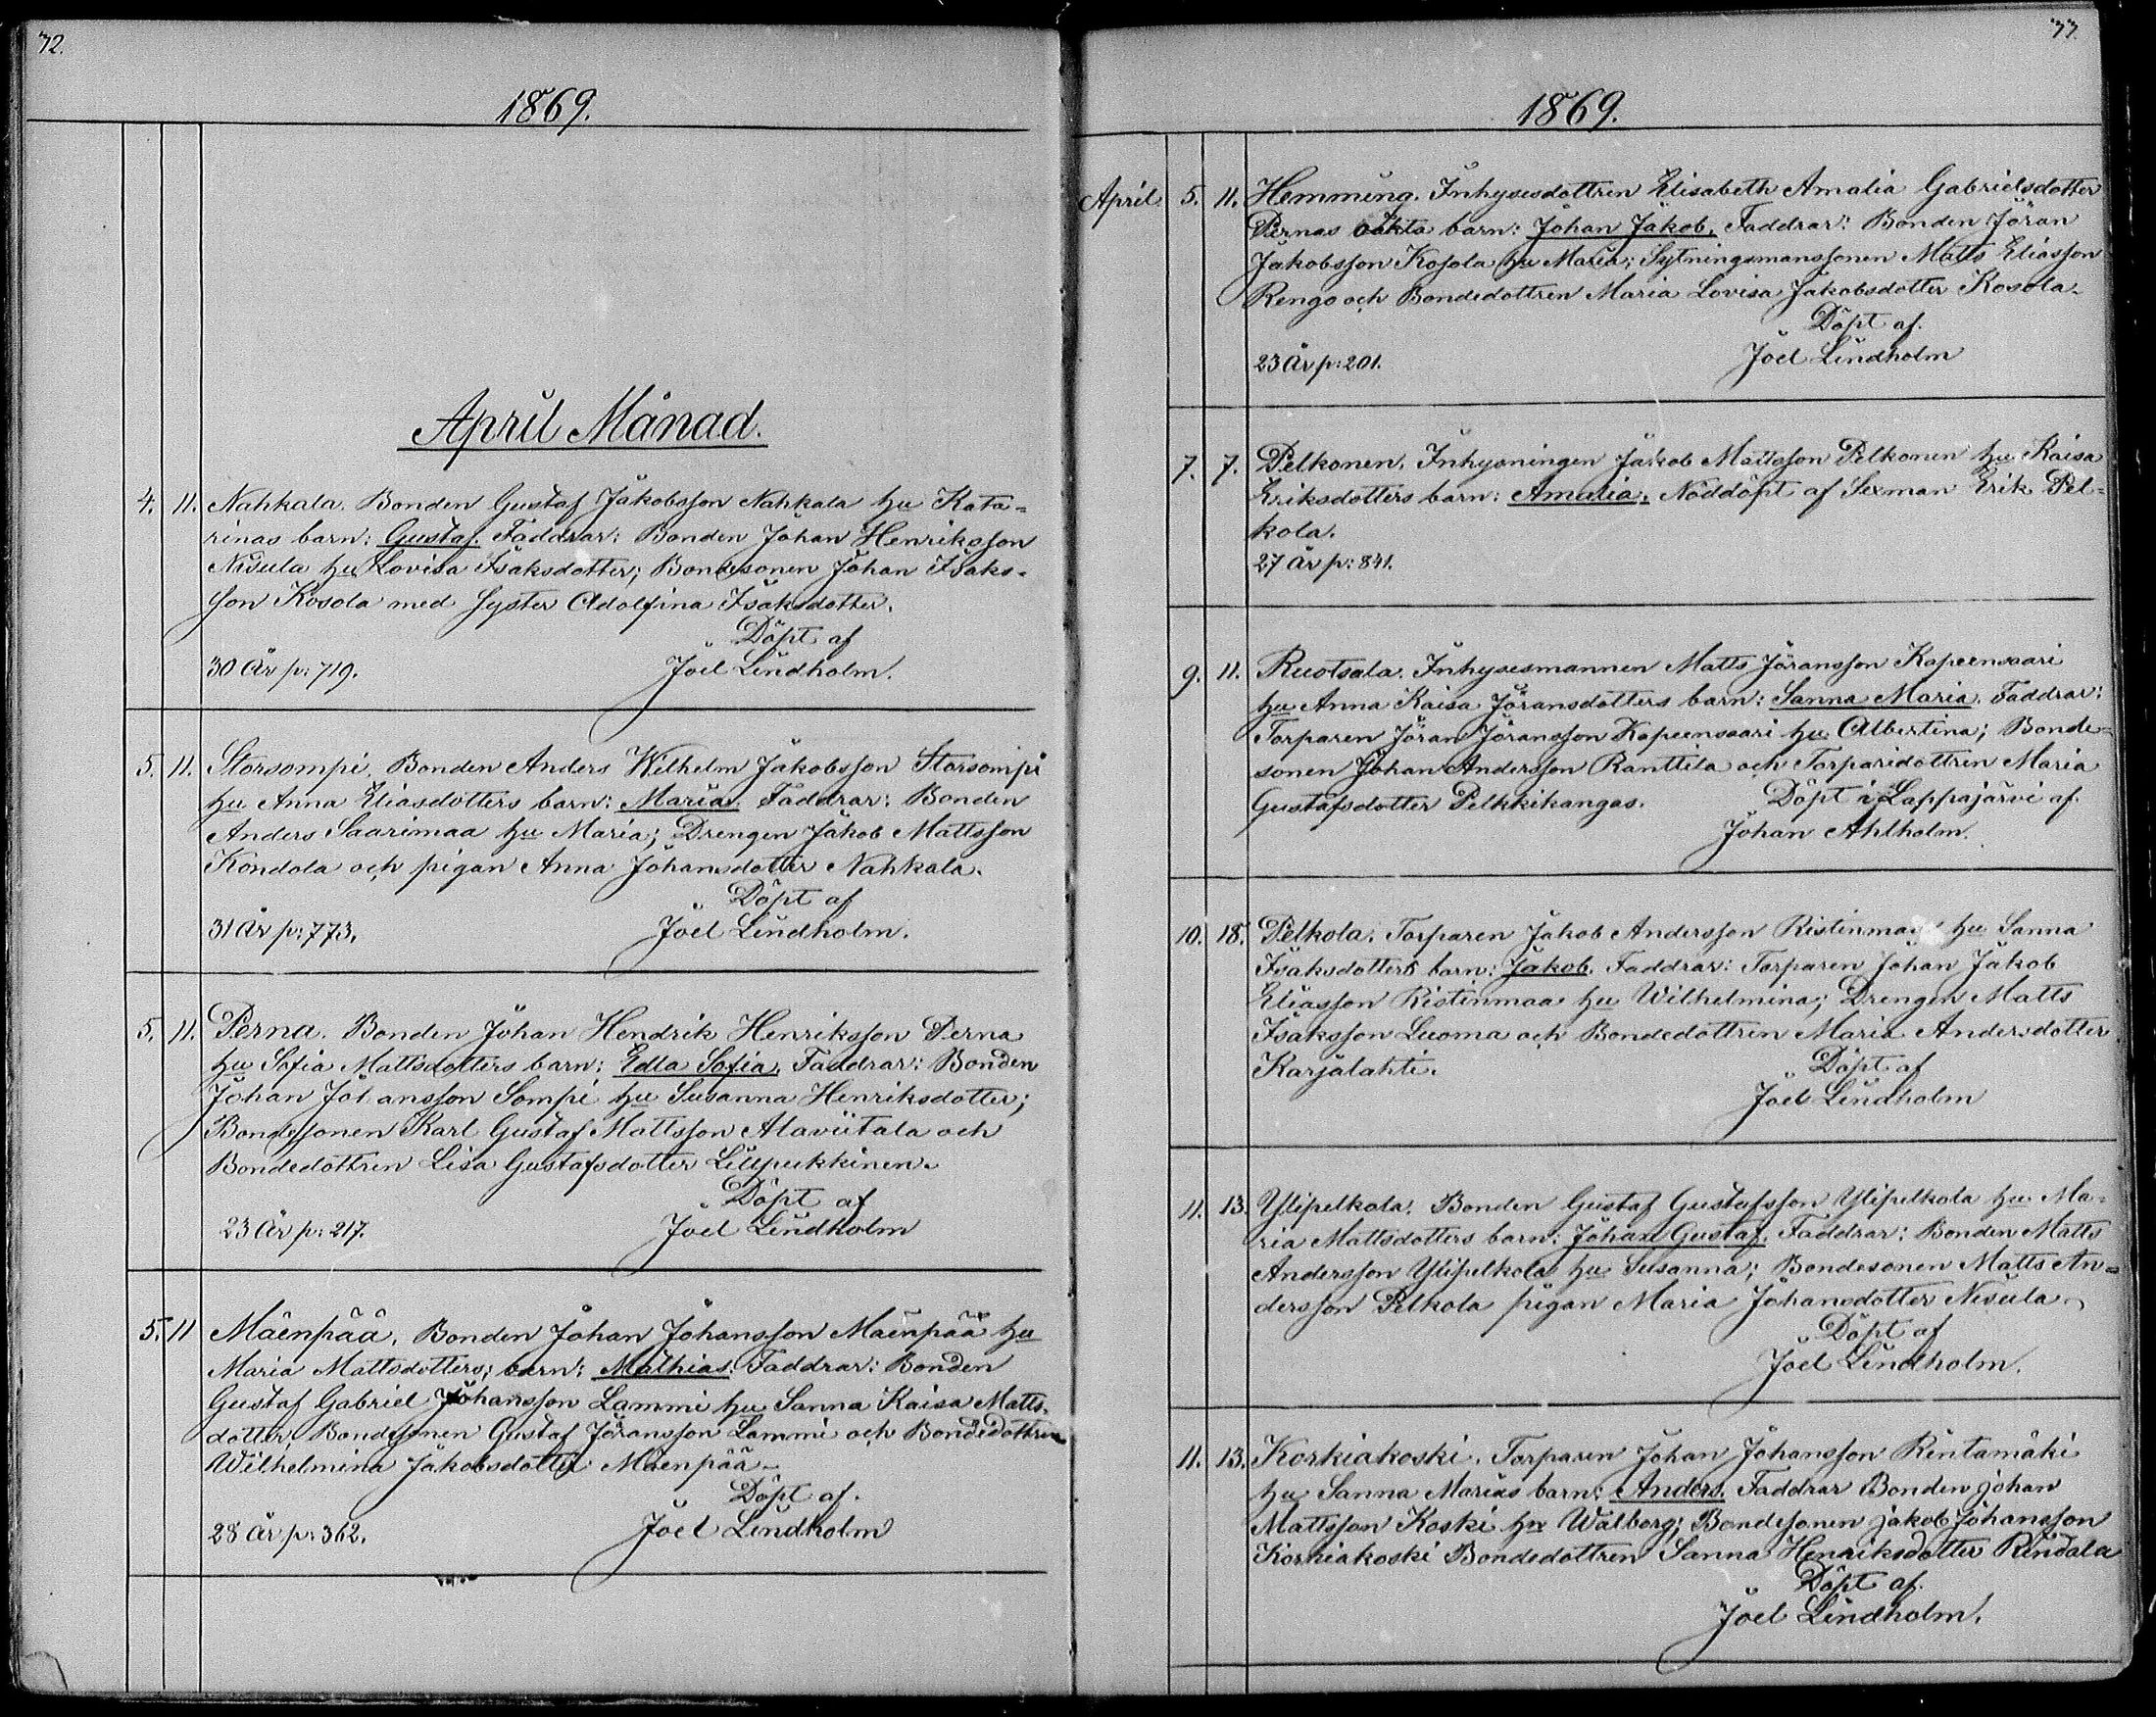 72.
1869.
April Månad.
4. 11. Nahkala. Bonden Gustaf Jakobsson Nahkala hu Kata=
rinas barn: Gustaf. Faddrar: Bonden Johan Henriksson
Nisula hu Lovisa Isaksdotter; Bondesonen Johan Isaks-
son Kosola med syster Adolfina Isaksdotter.
Döpt af
30 år p: 719. Joel Lindholm.
5. 11. Storsompi. Bonden Anders Wilhelm Jakobsson Storsompi
hu Anna Eliasdotters barn: Maria. Faddrar: Bonden
Anders Saarimaa hu Maria; Drengen Jakob Mattsson
Kondola och pigan Anna Johansdotter Nahkala.
Döpt af
31 år p: 773. Joel Lindholm.
5. 11. Perna. Bonden Johan Hendrik Henriksson Perna
hu Sofia Mattsdotters barn: Edla Sofia. Faddrar: Bonden
Johan Johansson Sompi hu Susanna Henriksdotter;
Bondesonen Karl Gustaf Mattsson Alaviitala och
Bondedottren Lisa Gustafsdotter Lillpukkinen.
Döpt af
23 år p: 217. Joel Lindholm
5. 11 Mäenpää. Bonden Johan Johansson Mäenpää hu
Maria Mattsdotters; barn: Mathias. Faddrar: Bonden
Gustaf Gabriel Johansson Lammi hu Sanna Kaisa Matts-
dotter, Bondesonen Gustaf Jöransson Lammi och Bondedottren
Wilhelmina Jakobsdotter Mäenpää.
Döpt af.
28 år p: 362. Joel Lindholm
77.
1869.
April. 5. 11. Hemming. Inhysesdottren Elisabeth Amalia Gabrielsdotter
Pernas oäkta barn: Johan Jakob. Faddrar: Bonden Jöran
Jakobsson Kosola hu Maria; Sytningsmanssonen Matts Eliasson
Rengo och Bondedottren Maria Lovisa Jakobsdotter Kosola.
Döpt af.
23 år p: 201. Joel Lindholm
7. 7. Pelkonen. Inhysningen Jakob Mattsson Pelkonen hu Kaisa
Eriksdotters barn: Amalia. Nöddöpt af Sexman Erik Pel=
kola.
27 år p: 841.
9. 11. Ruotsala. Inhysesmannen Matts Jöransson Kapeensaari
hu Anna Kaisa Jöransdotters barn: Sanna Maria. Faddrar:
Torparen Jöran Jöransson Kapeensaari hu Albertina; Bonde=
sonen Johan Andersson Ranttila och Torparidottren Maria
Gustafsdotter Pelkkikangas. Döpt i Lappajärvi af.
Johan Ahlholm.
10. 18. Pelkola. Torparen Jakob Andersson Ristinmaa hu Sanna
Isaksdotters barn: Jakob. Faddrar: Torparen Johan Jakob
Eliasson Ristinmaa hu Wilhelmina; Drengen Matts
Isaksson Luoma och Bondedottren Maria Andersdotter
Karjalahti. Döpt af
Joel Lindholm
11. 13. Ylipelkola. Bonden Gustaf Gustafsson Ylipelkola hu Ma-
ria Mattsdotters barn: Johan Gustaf. Faddrar: Bonden Matts
Andersson Ylipelkola hu Susanna; Bondesonen Matts An=
dersson Pelkola pigan Maria Johansdotter Nisula.
Döpt af
Joel Lindholm.
11. 13. Korkiakoski. Torparen Johan Johansson Rintamäki
hu Sanna Marias barn: Anders. Faddrar Bonden Johan
Mattsson Koski hu Walborg; Bondesonen Jakob Johansson
Korkiakoski Bondedottren Sanna Henriksdotter Rindala
Döpt af.
Joel Lindholm.